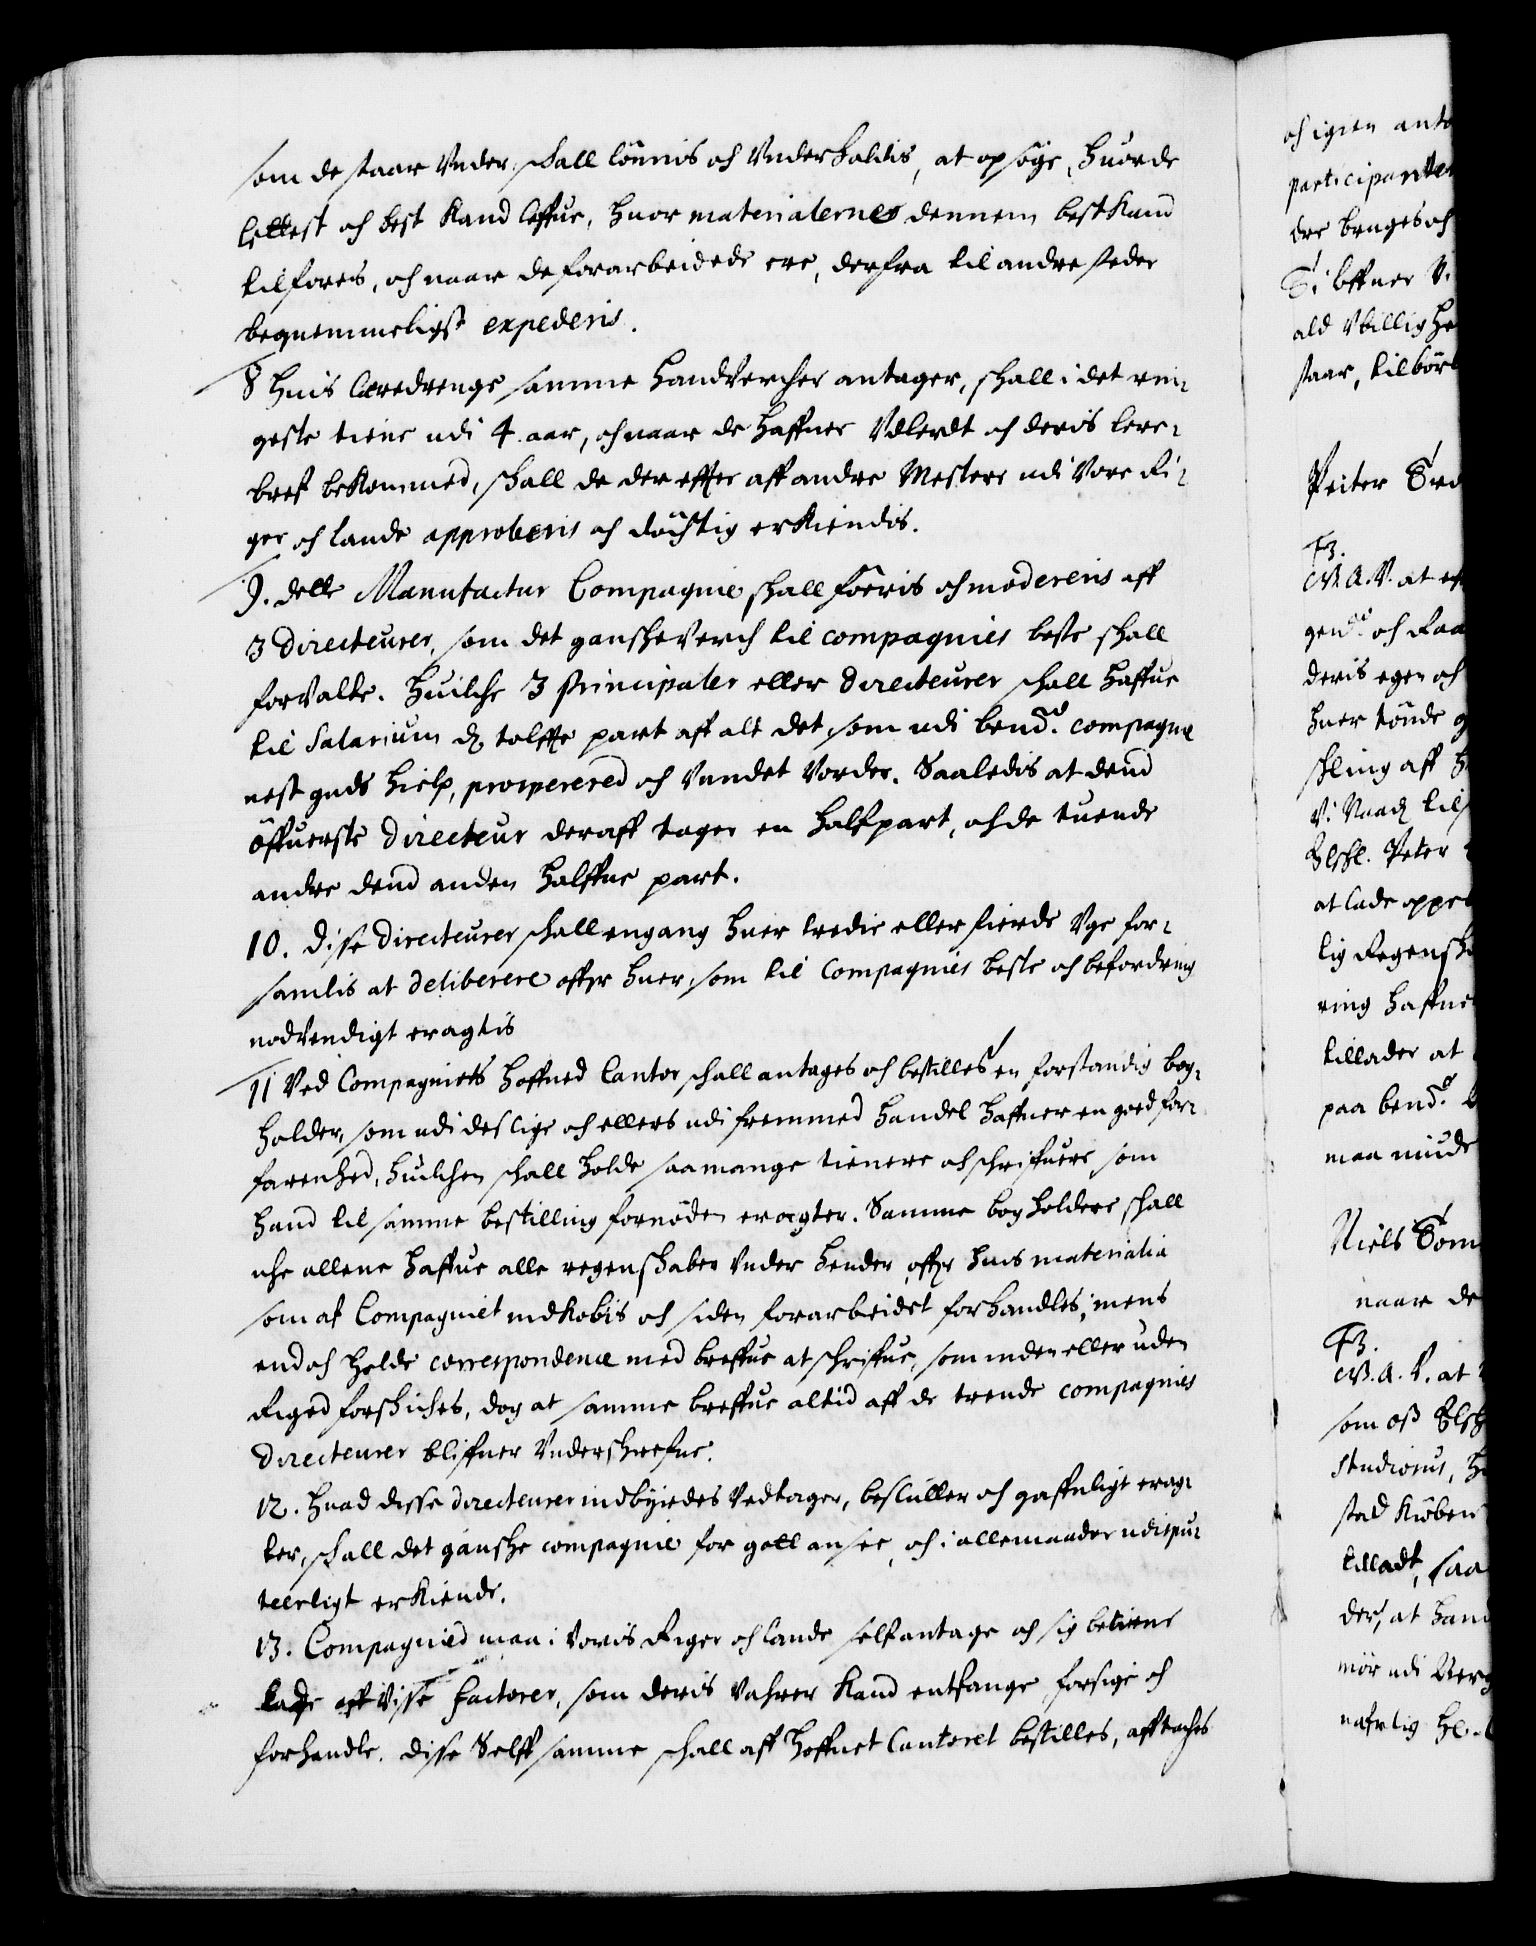 som de staar Vnder, skall lönnis och Vnderholdis, at opsöge, huor de
lettest och best kand leffue, huor materialerne dennem best kand
tilföres, och naar de forarbeidede ere, derfra til andre steder
beqvemmeligst expederis.
8 Huis læredrenge samme Handvercher antager, skall i det rin-
geste tiene udi 4 aar, och naar de haffuer Vdlerdt och deris lere-
bref bekommed, skall de der effter aff andre Mestere udi Vore Ri-
ger och lande approberis och döchtig erkiendis.
9. dette Manufactur Compagnie skall föeris och modereris aff
3 Directeurer, som det ganshe verch til compagniets beste skall
forvalte. Huilche 3 Principaler eller Directeurer skall haffue
til Salarium dend tolffte part aff alt det, som udi bemte compagnie
nest guds hielp, prospereret och Vundet Vorder. Saaledis at dend
öffuerste Directeur deraff tager en halfpart, och de tuende
andre dend anden halffue part.
10. Disse Directeurer skall engang huer tredie eller fierde Vge for-
samlis at deliberere offuer huer, som til Compagniets beste och befordring
nödvendigt eragtis
11 Ved Compagniets hoffued Cantor skall antages och bestilles en forstandig bog-
holder, som udi deslige och ellers udi fremmed handel haffuer en goed for-
farenhed, huilchen skall holde saa mange tienere och schriffuere som
hand til samme bestilling fornöden eragter. Samme bogholdere skall
iche allene haffue alle regenskaber Vnder hender offuer huis materialia
som af Compagniet indkiöbis och siden forarbeidet forhandles, mens
endoch holde correspondence med breffue at schriffue, som inden eller uden
Riged forshiches, dog at samme breffue altid aff de trende compagnies
Directeurer bliffuer Vndershrefne.
12. Huad disse directeurer indbyrdes Vedtager, beslutter och gaffnligt erag-
ter, skall det ganshe compagnie for gott ansee, och i alle maader udispu-
teerligt erkiende.
13. Compagnied maa i Voris Riger och lande self antage och sig betiene
lade aff Visse factorer, som deris Vahrer kand entfange forsige och
forhandle. disse Selff samme skall aff hoffuet Cantoret bestilles, afftaches
och igien anta
participanter
dre bruges och
ald Vbillighe
staar, tilbörl
Peiter
at
och Raa
deris egen och
huer tönde
shling aff
Peter
at lade oppe
lig Regensk
ring haffue
tillader at
paa
maa
Niels
naar de
at
som oss
studiosus,
stad Kiöben
tilladt, saa
der, at hand
udi